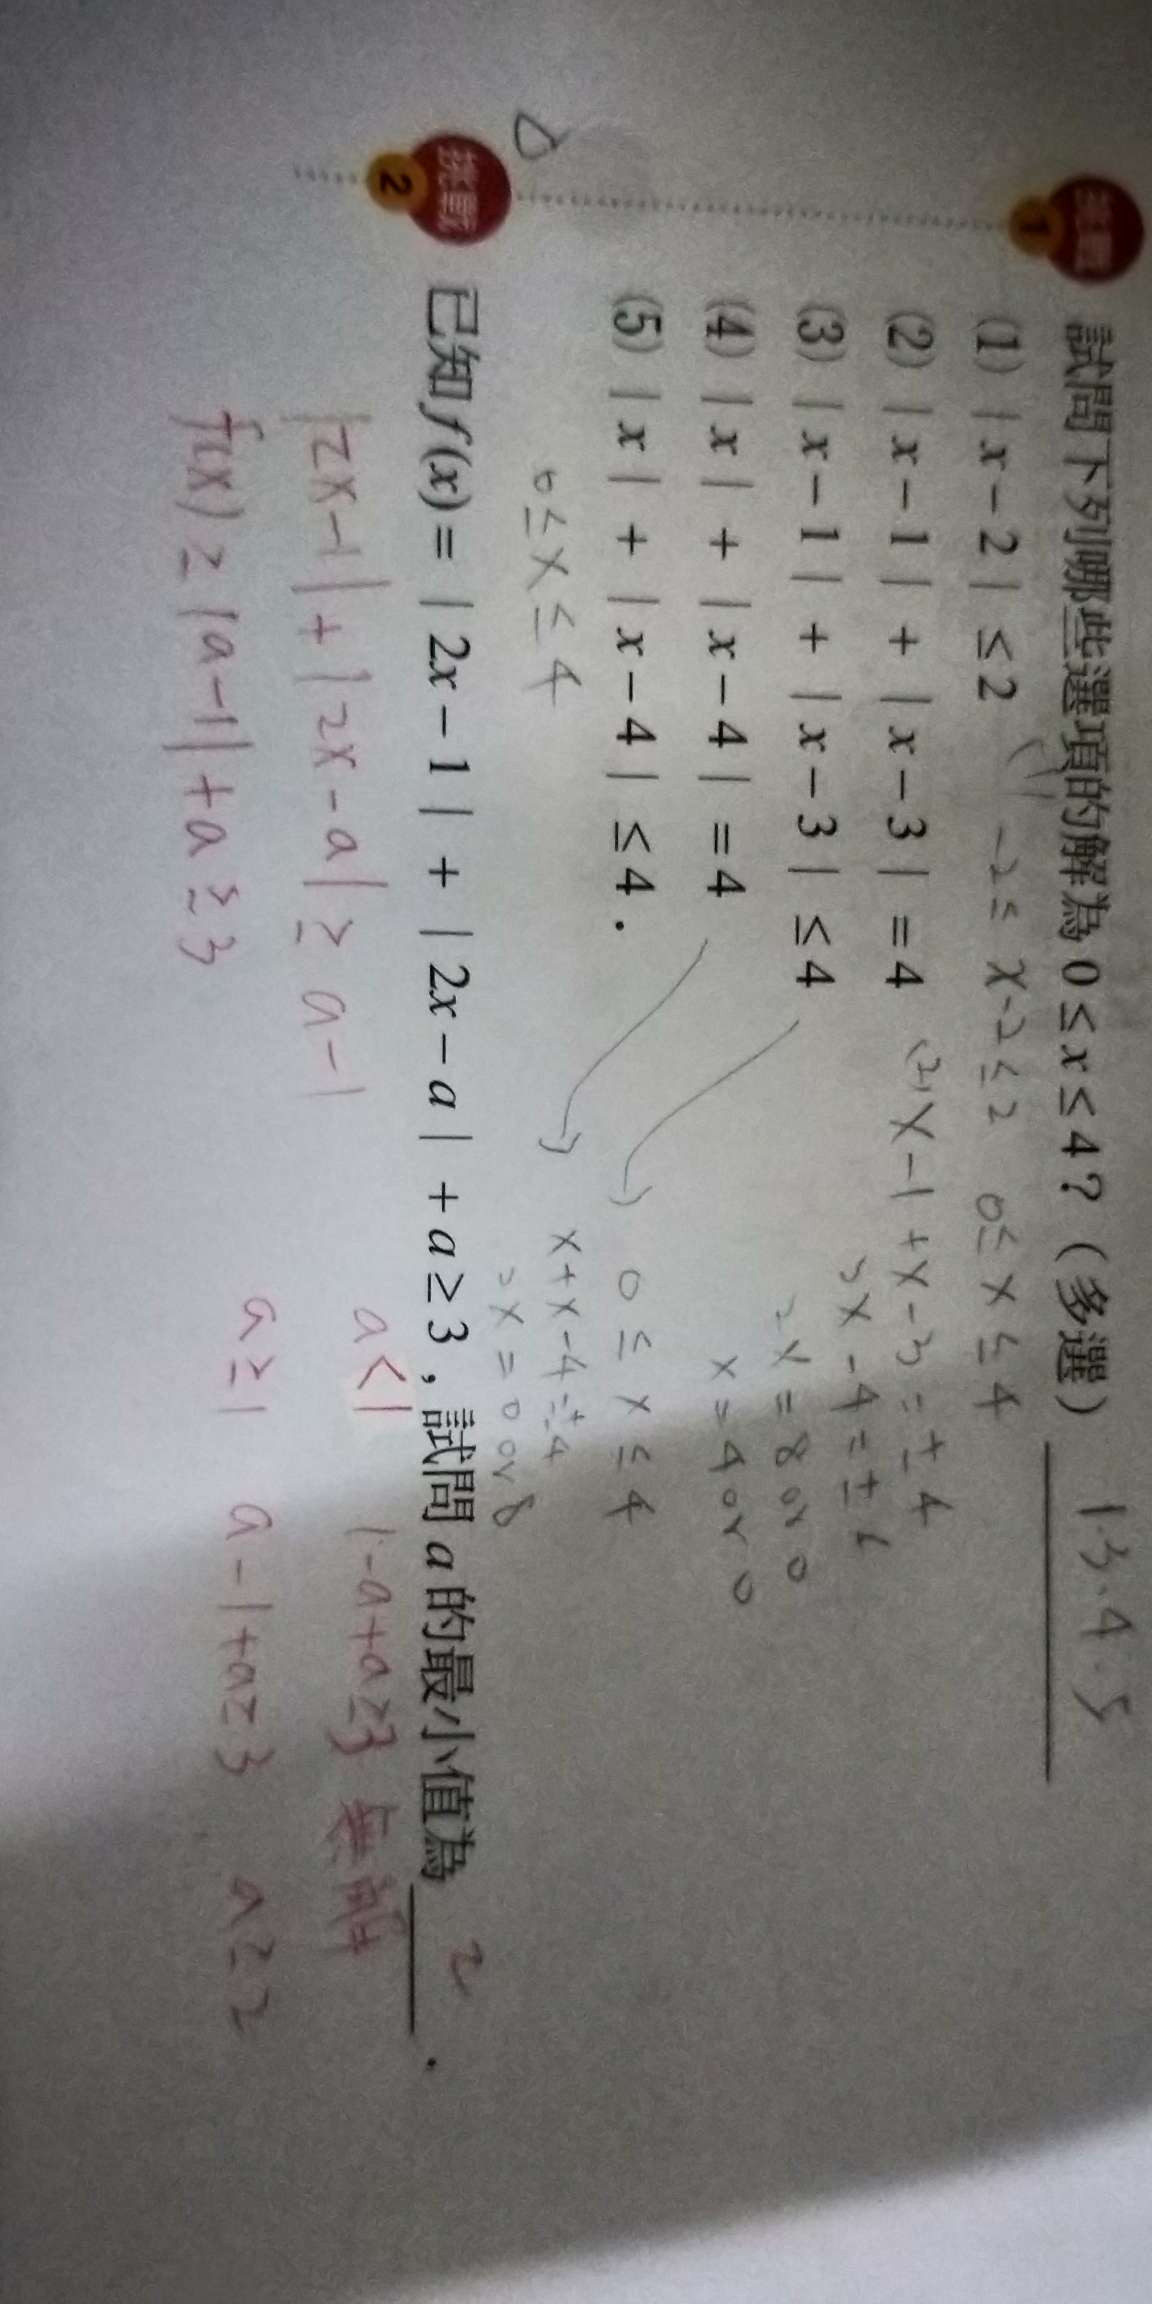 挑戰 1 試問下列哪些選項的解為 0 ≤ x ≤ 4？（多選） 1.3.4.5
(1) | x − 2 | ≤ 2 (1) −2 ≤ x-2 ≤ 2 0 ≤ x ≤ 4
(2) | x − 1 | + | x − 3 | = 4 (2) x − 1 + x − 3 = ± 4
2x − 4 = ±
(3) | x − 1 | + | x − 3 | ≤ 4
2x = 8 or 0
(4) | x | + | x − 4 | = 4
x = 4 or 0
(5) | x | + | x − 4 | ≤ 4 .
0 ≤ x ≤ 4
0 ≤ x ≤ 4
x + x − 4 = ±4
2x = 0 or 8
挑戰 2 已知 f(x) = | 2x − 1 | + | 2x − a | + a ≥ 3，試問 a 的最小值為 2 .
|2x − 1| + |2x − a| ≥ a − 1
a < 1 1 − a + a ≥ 3 無解
a ≥ 1 a − 1 + a ≥ 3 a ≥ 2
f(x) ≥ |a − 1| + a ≥ 3